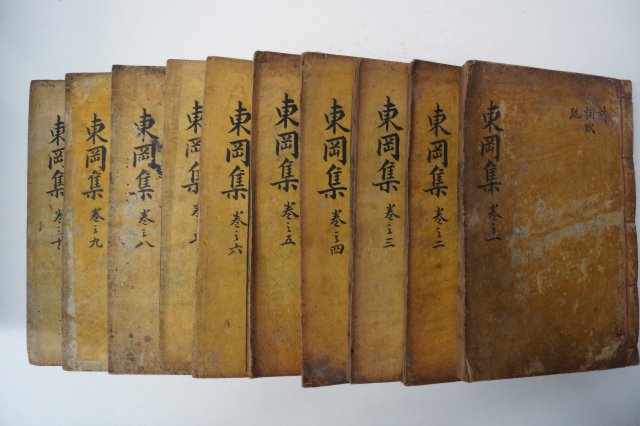 東岡集 卷之一
詩
詞賦
疏
東岡集 卷之二
東岡集 卷之三
東岡集 卷之四
東岡集 卷之五
東岡集 卷之六
東岡集 卷之七
東岡集 卷之八
東岡集 卷之九
東岡集 卷之十